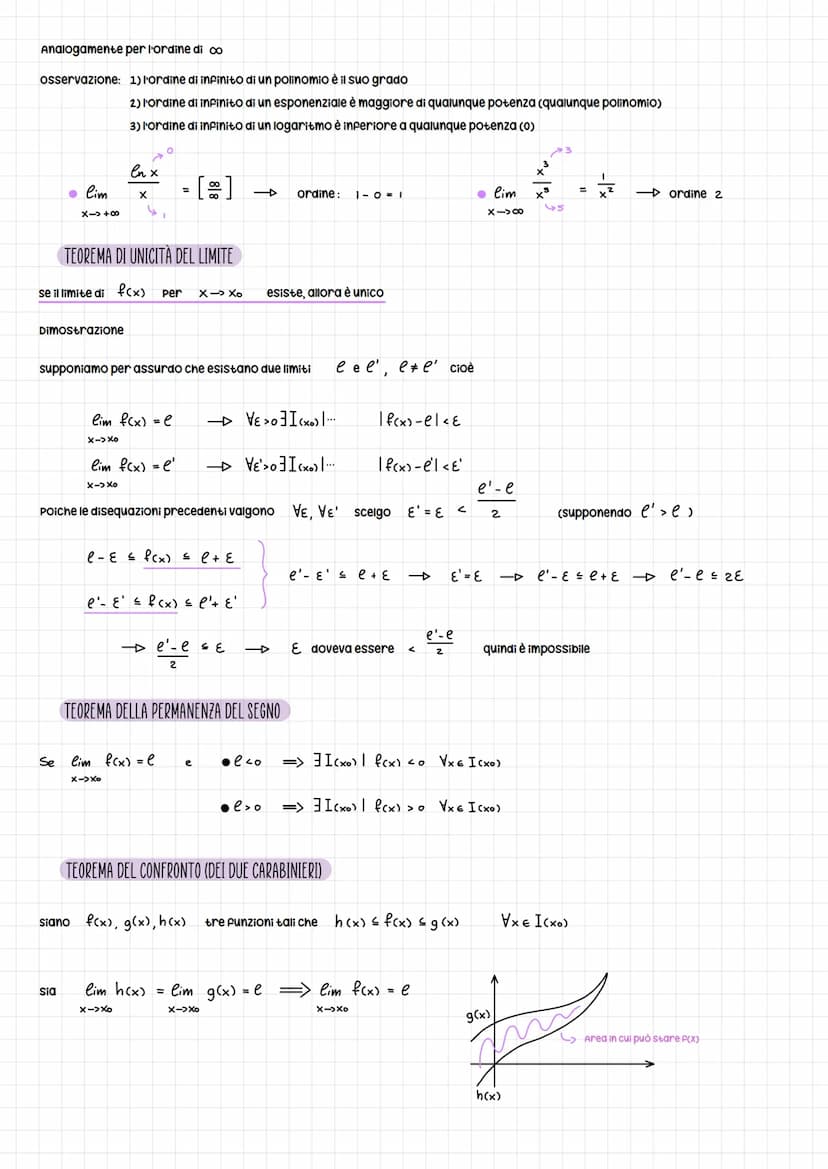 Analogamente per l'ordine di ∞
osservazione: 1) l'ordine di infinito di un polinomio è il suo grado
2) l'ordine di infinito di un esponenziale è maggiore di qualunque potenza (qualunque polinomio)
3) l'ordine di infinito di un logaritmo è inferiore a qualunque potenza (0)
• lim x→+∞ ln x / x = [∞/∞] → ordine: 1 - 0 = 1 • lim x→∞ x³/x⁵ = 1/x² → ordine 2
0 1 3 5
TEOREMA DI UNICITÀ DEL LIMITE
se il limite di f(x) per x→x₀ esiste, allora è unico
Dimostrazione
supponiamo per assurdo che esistano due limiti l e l', l ≠ l' cioè
lim x→x₀ f(x) = l → ∀ε>0 ∃I(x₀)|... |f(x)-l|<ε
lim x→x₀ f(x) = l' → ∀ε'>0 ∃I(x₀)|... |f(x)-l'|<ε'
Poiche le disequazioni precedenti valgono ∀ε, ∀ε' scelgo ε' = ε < (l'-l)/2 (supponendo l' > l )
l - ε ≤ f(x) ≤ l + ε
l'- ε' ≤ l + ε → ε'=ε → l'-ε ≤ l+ε → l'-l ≤ 2ε
l'- ε' ≤ f(x) ≤ l'+ ε'
→ (l'-l)/2 ≤ ε → ε doveva essere < (l'-l)/2 quindi è impossibile
TEOREMA DELLA PERMANENZA DEL SEGNO
Se lim x→x₀ f(x) = l e • l<0 ⇒ ∃I(x₀)| f(x) <0 ∀x∈I(x₀)
• l>0 ⇒ ∃I(x₀)| f(x) >0 ∀x∈I(x₀)
TEOREMA DEL CONFRONTO (DEI DUE CARABINIERI)
siano f(x), g(x), h(x) tre funzioni tali che h(x) ≤ f(x) ≤ g(x) ∀x∈I(x₀)
sia lim x→x₀ h(x) = lim x→x₀ g(x) = l ⟹ lim x→x₀ f(x) = l
g(x)
Area in cui può stare f(x)
h(x)